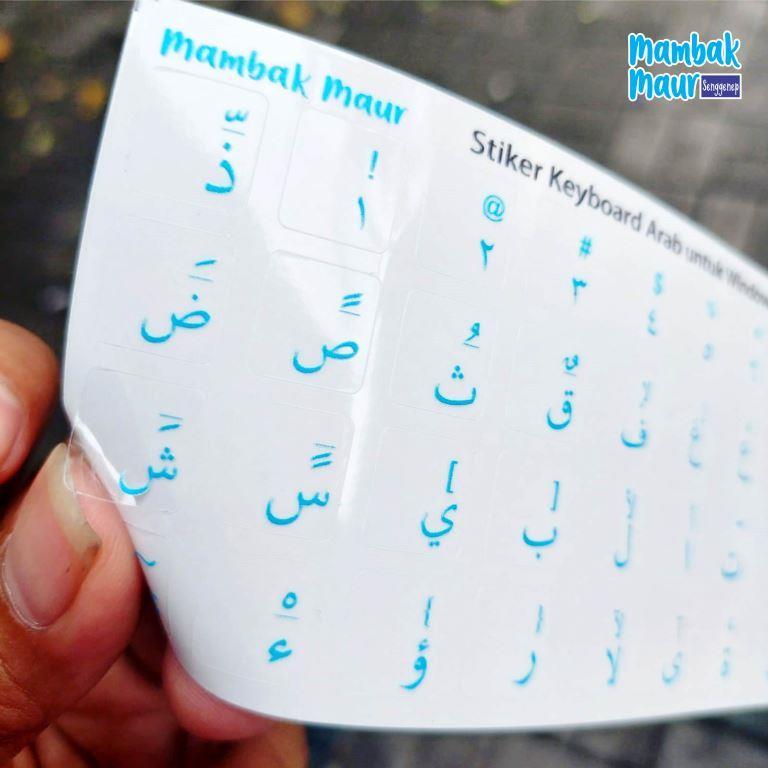 Mambak
Maur
Senggenep
Mambak Maur
Stiker Keyboard Arab untuk
ّ ! @ # $
ذ ١ ٢ ٣ ٤
َ ً ُ ٌ
ض ص ث ق ف
ِ ٍ ] [
ش س ي ب ل
ْ
ء ؤ ر لا ى ة